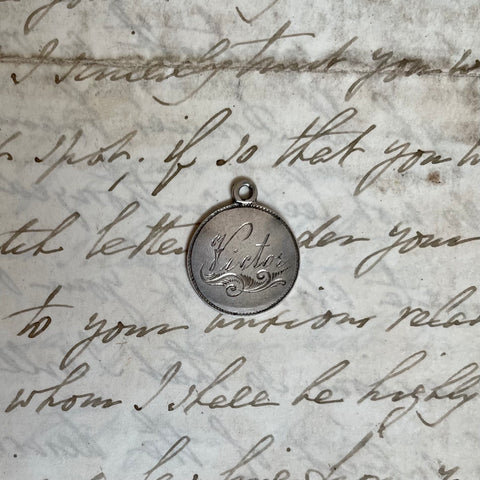 I sincerely trust you w
spot, if so that you w
tch letter der your
Victor
to your anxious rela
whom I shall be highly